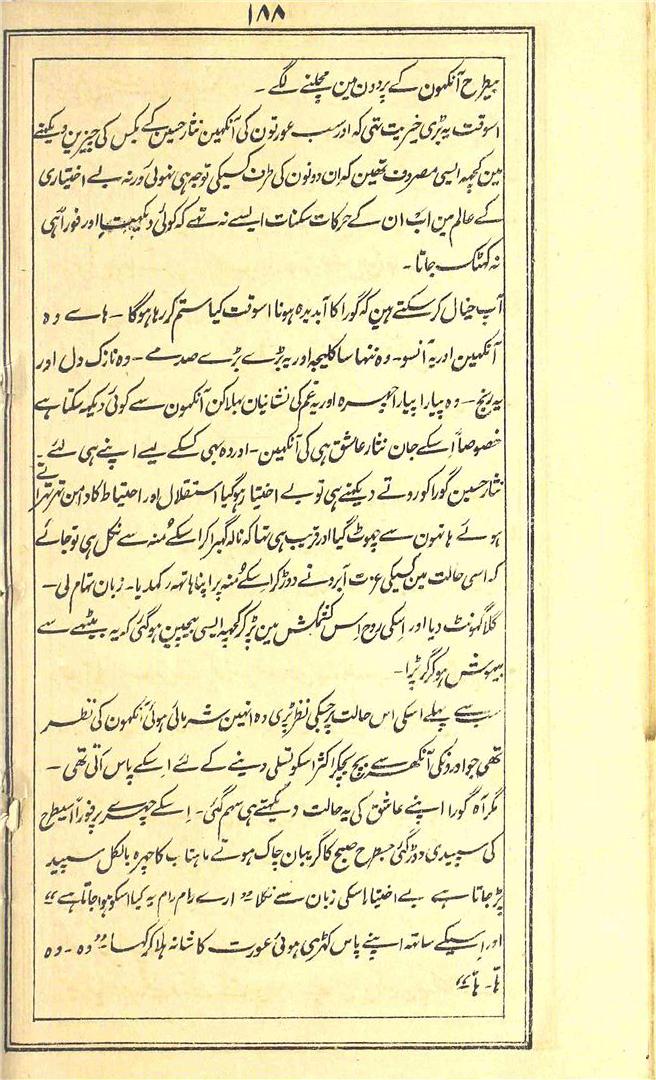 ۱۸۸
بیطرح آنکہون کے پردون مین مچلنے لگے ۔
اسوقت یہ بڑی خیریت تہی کہ اور سب عورتون کی آنکہین نثار حسین کے بکس کی چیزین دیکہنے
مین کچہہ ایسی مصروف تہین کہ ان دونون کی طرف کسیکی توجہ ہی نہوئی ورنہ بے اختیاری
کے عالم مین اب ان کے حرکات سکنات ایسے نہ تہے کہ کوئی دیکہیتا اور فوراً ہی
نہ کہٹک جاتا ۔
آپ خیال کر سکتے ہین کہ گورا کا آبدیدہ ہونا اسوقت کیا ستم کر رہا ہوگا ۔ ہاے وہ
آنکہین اور یہ آنسو ۔ وہ ننہا سا کلیجہ اور یہ بڑے بڑے صدمے ۔ وہ نازک دل اور
یہ رنج ۔ وہ پیارا پیارا چہرہ اور یہ غم کی نشانیان بہلا کن آنکہون سے کوئی دیکہہ سکتا ہے
خصوصاً اسکے جان نثار عاشق ہی کی آنکہین ۔ اور وہ بہی کسکے لیے اپنے ہی لئے ۔
نثار حسین گورا کو روتے دیکہتے ہی تو بے اختیار ہوگیا استقلال اور احتیاط کا دامن تہرتہراتے
ہوئے ہاتہون سے چہوٹ گیا اور قریب ہی تہا کہ نالہ گہبرا کر اسکے مُنہ سے نکل ہی تو جائے
کہ اسی حالت مین کسیکی عزت آبرو نے دوڑ کر اسکے مُنہ پر اپنا ہاتہہ رکہدیا ۔ زبان تہام لی ۔
گلا گہونٹ دیا اور اسکی روح اس کشمکش مین پڑ کر کچہہ ایسی بیچین ہوگئی کہ یہ بیٹہے سے
بیہوش ہوکر گر پڑا ۔
سب سے پہلے اسکی اس حالت پر جسکی نظر پڑی وہ انہین شرمائی ہوئی آنکہون کی نظر
تہی جو اورونکی آنکہہ سے بچ بچکر اکثر اسکو تسلی دینے کے لئے اسکے پاس آتی تہی ۔
مگر آہ گورا اپنے عاشق کی یہ حالت دیکہتے ہی سہم گئی ۔ اسکے چہرے پر فوراً اسیطرح
کی سپیدی دوڑ گئی جسطرح صبح کا گریبان چاک ہوتے ماہتاب کا چہرہ بالکل سپید
پڑ جاتا ہے بے اختیار اسکی زبان سے نکلا ”ارے رام رام یہ کیا اسکو ہوا جاتا ہے“
اور اسیکے ساتہہ اپنے پاس کہڑی ہوئی عورت کا شانہ ہلا کر کہا ”وہ ۔ وہ
ہا ۔ ہا“